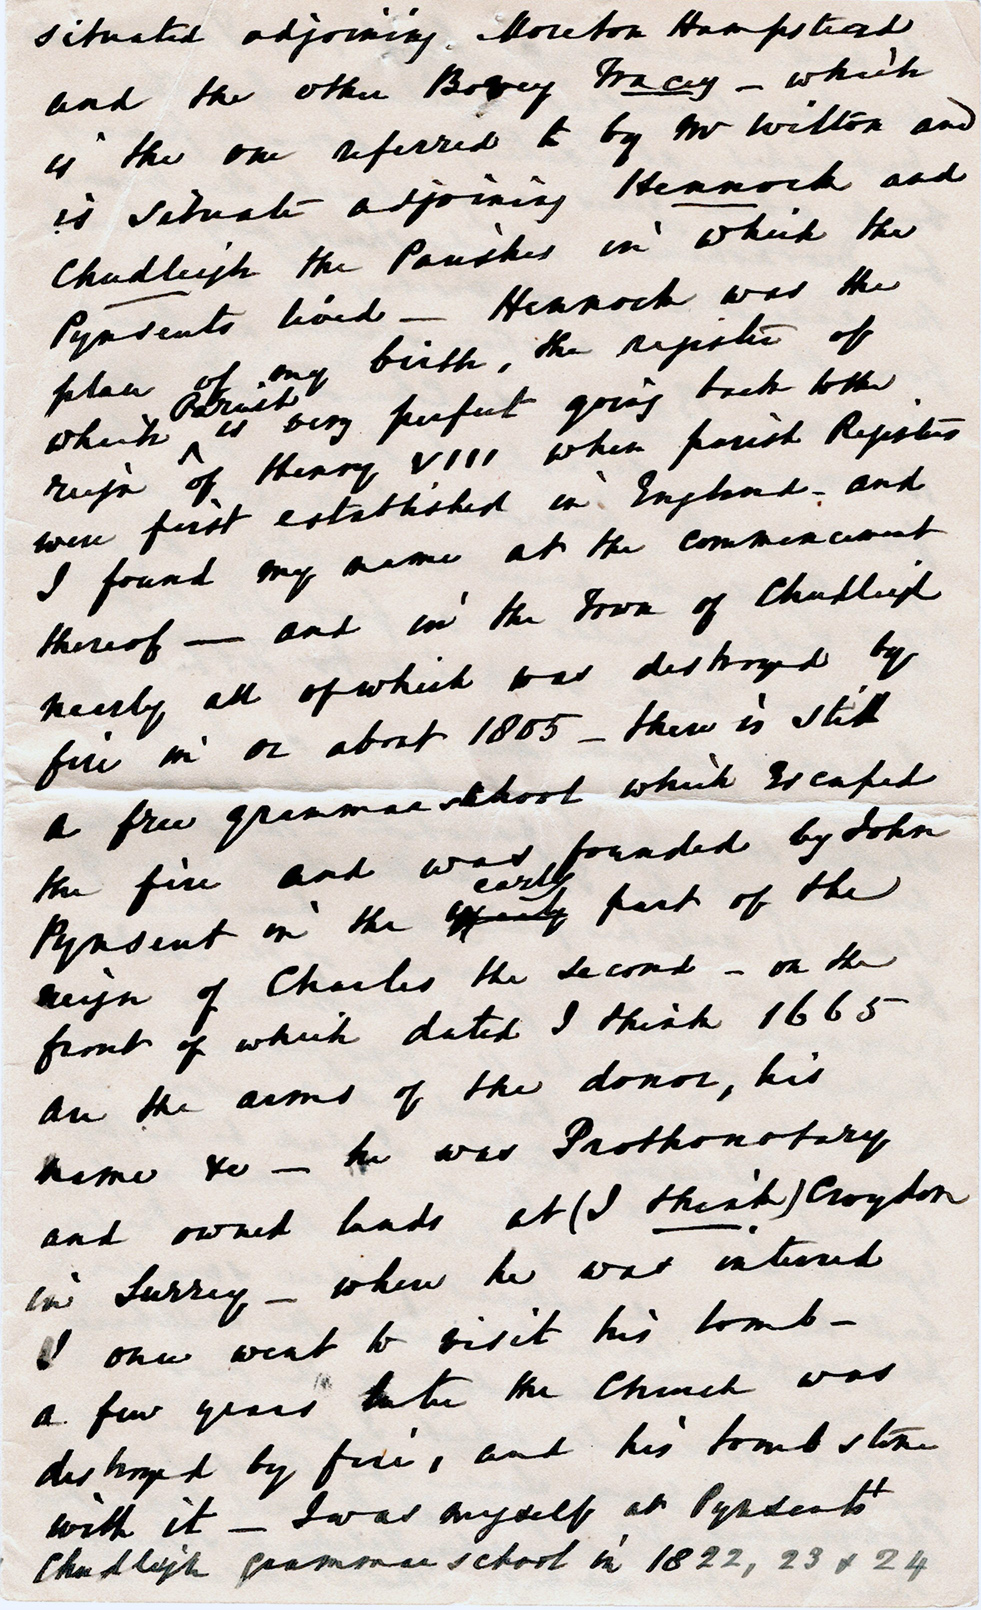 situated adjoining Moreton Hampstead
and the other Bovey Tracey – which
is the one referred to by Mr Wilton and
is situate adjoining Hennock and
Chudleigh the Parishes in which the
Pynsents lived — Hennock was the
place of my birth, the register of
which ^ Parish is very perfect going back to the
reign of Henry VIII when parish Registers
were first established in England – and
I found my name at the commencement
thereof — and in the Town of Chudleigh
nearly all of which was destroyed by
fire in or about 1805 – there is still
a free grammar school which Escaped
the fire and was founded by John
Pynsent in the early part of the
reign of Charles the Second – on the
front of which dated I think 1665
are the arms of the donor, his
name &c — he was Prothonotary
and owned lands at (I think) Croydon
in Surrey – where he was interred
I once went to visit his tomb –
a few years later the Church was
destroyed by fire, and his tomb stone
with it – I was myself at Pynsents
Chudleigh grammar school in 1822, 23 & 24